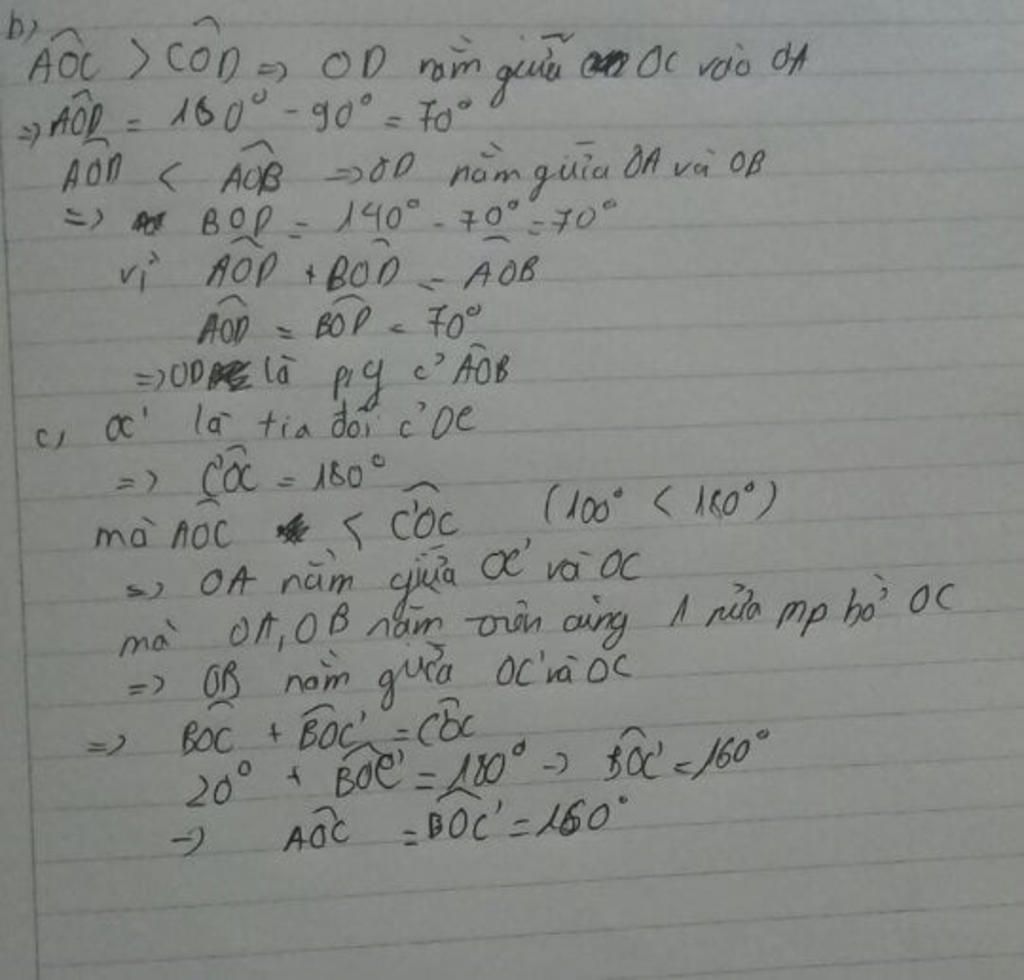 b)
AÔC > CÔD => OD nằm giữa OC vào OA
=> AÔD = 160° - 90° = 70°
AÔD < AÔB => OD nằm giữa OA và OB
=> BOD = 140° - 70° = 70°
vì AÔD + BÔD = AÔB
AÔD = BÔD = 70°
=> OD là p/g c' AÔB
c, OC' là tia đối c' OC
=> C'ÔC = 180°
mà AÔC < C'ÔC (100° < 180°)
=> OA nằm giữa OC' và OC
mà OA, OB nằm trên cùng 1 nửa mp bờ OC
=> OB nằm giữa OC' và OC
=> BÔC + BÔC' = C'ÔC
20° + BÔC' = 180° -> BÔC' = 160°
-> AÔC = BÔC' = 160°